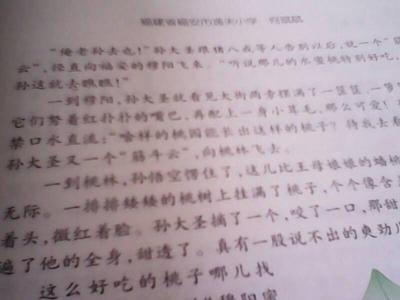 福建省福安市逸夫小学
“俺老孙去也！”孙大圣跟猪八戒等人告别以后，就一个“筋
云”，径直向福安的穆阳飞来。“听说那儿的水蜜桃特别好吃，
孙这就去瞧瞧！”
一到穆阳，孙大圣就看见大街两旁摆满了一筐筐、一箩
它们努着红扑扑的嘴巴，再配上一身小茸毛，那么可爱！
禁口水直流：“啥样的桃园能长出这样的桃子？待我去看
孙大圣又一个“筋斗云”，向桃林飞去。
一到桃林，孙悟空愣住了，这儿比王母娘娘的蟠桃
无际。一排排矮矮的桃树上挂满了桃子，个个像含
着头，微红着脸。孙大圣摘了一个，咬了一口，那甜
遍了他的全身，甜透了。真有一股说不出的爽劲儿
这么好吃的桃子哪儿找
穆阳蜜